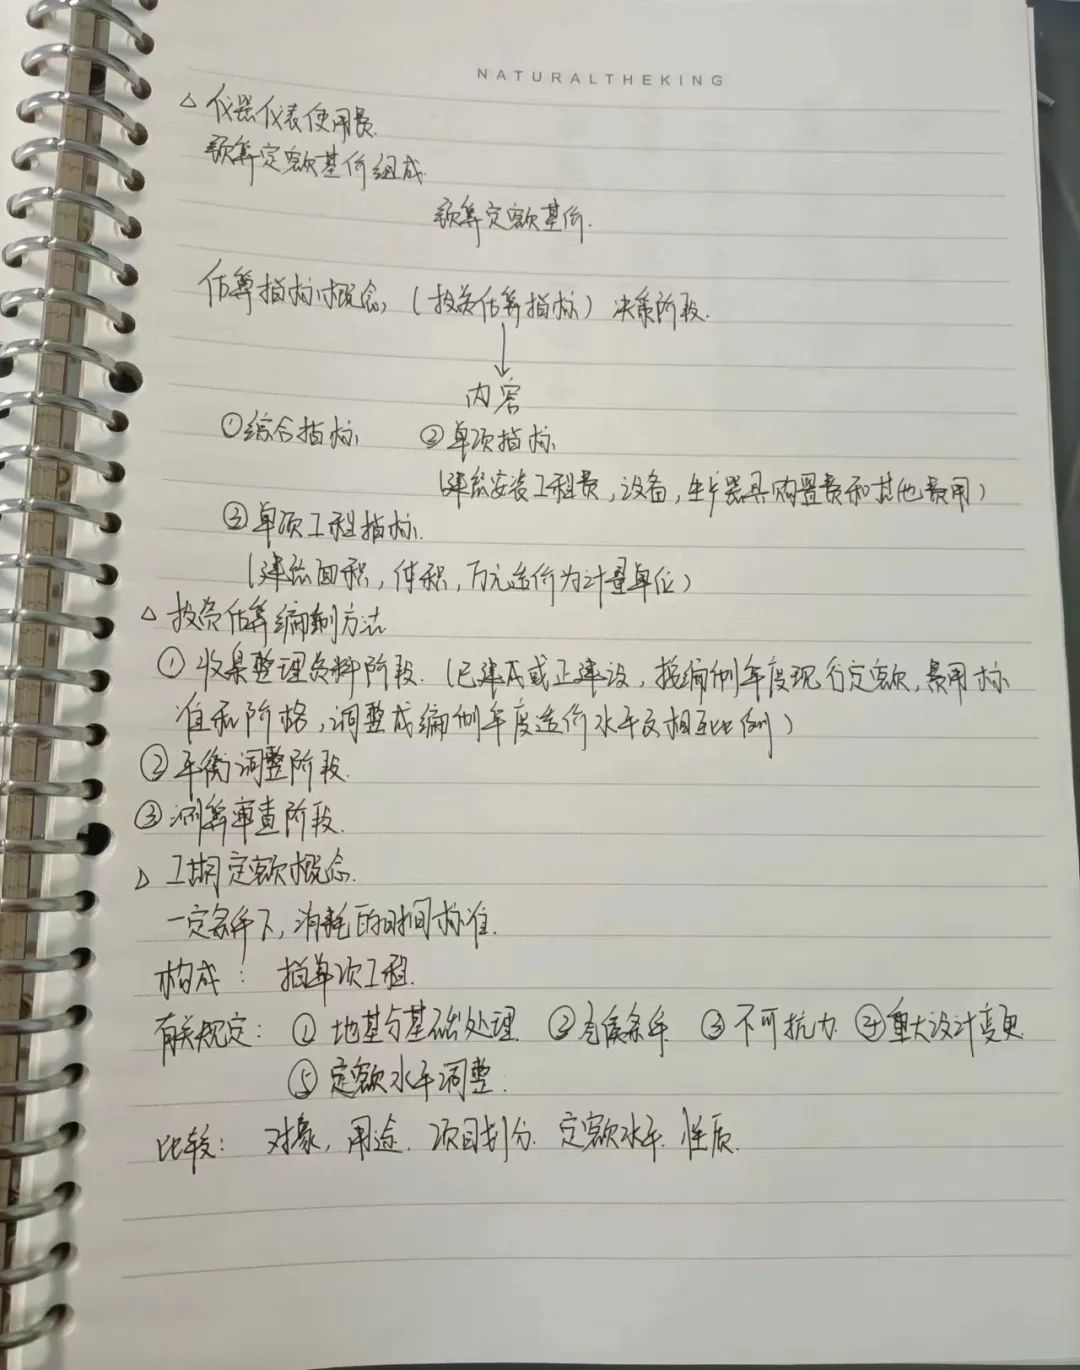 NATURALTHEKING
△ 仪器仪表使用费.
预算定额基价组成.
预算定额基价.
估算指标概念,(投资估算指标)决策阶段.
↓
内容
①综合指标 ②单项指标
(建筑安装工程费,设备,生产器具购置费和其他费用)
③单项工程指标.
(建筑面积,体积,万元造价为计量单位)
△ 投资估算编制方法
① 收集整理资料阶段.(已建成或正建设,按编制年度现行定额,费用标
准和价格,调整成编制年度造价水平及相互比例)
②平衡调整阶段.
③测算审查阶段.
△ 工期定额概念.
一定条件下,消耗的时间标准.
构成: 指单项工程.
有关规定: ① 地基与基础处理 ②气候条件 ③ 不可抗力 ④重大设计变更
⑤ 定额水平调整.
比较: 对象,用途.项目划分.定额水平.性质.